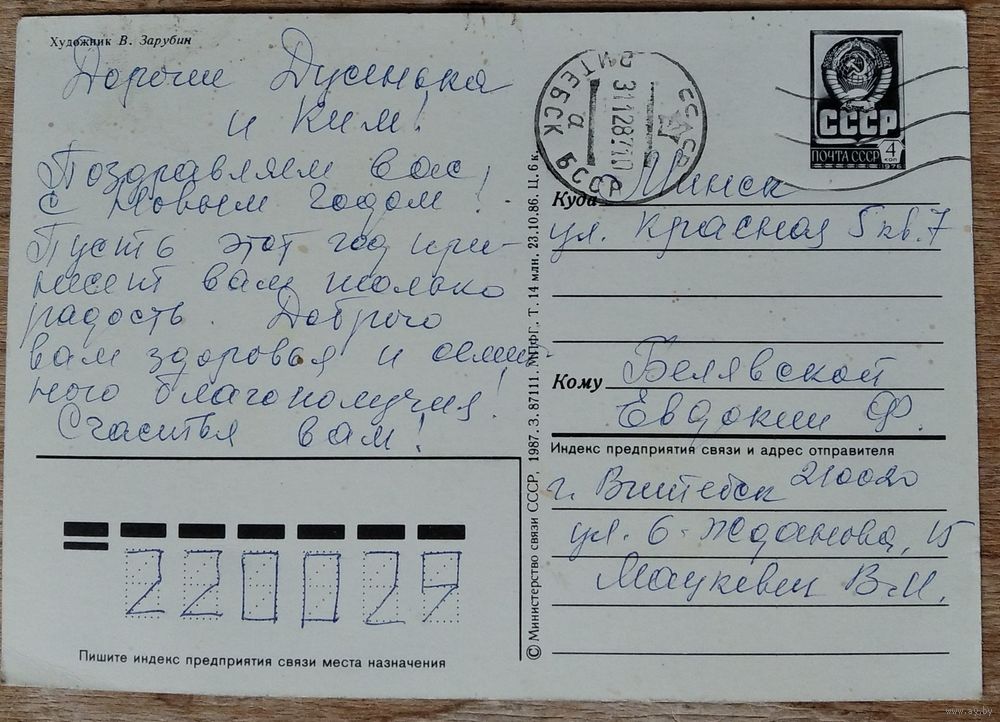 Художник В. Зарубин
Дорогие Дусенька
и Ким!
Поздравляем вас
с Новым годом!
Пусть этот год при-
несет вам только
радость. Доброго
вам здоровья и семей-
ного благополучия!
Счастья вам!
Пишите индекс предприятия связи места назначения
© Министерство связи СССР, 1987. З. 87111. МПФГ, Т. 14 млн. 23.10.86. Ц. 6 к.
ВИТЕБСК БССР
СССР
а
СССР
ПОЧТА СССР
4
коп
1976
Куда Минск
ул. Красная 5 кв. 7
Кому Белявской
Евдокии Ф.
Индекс предприятия связи и адрес отправителя
г. Витебск 210020
ул. 6-Жданова, 15
Мацкевич В.И.
www.ay.by